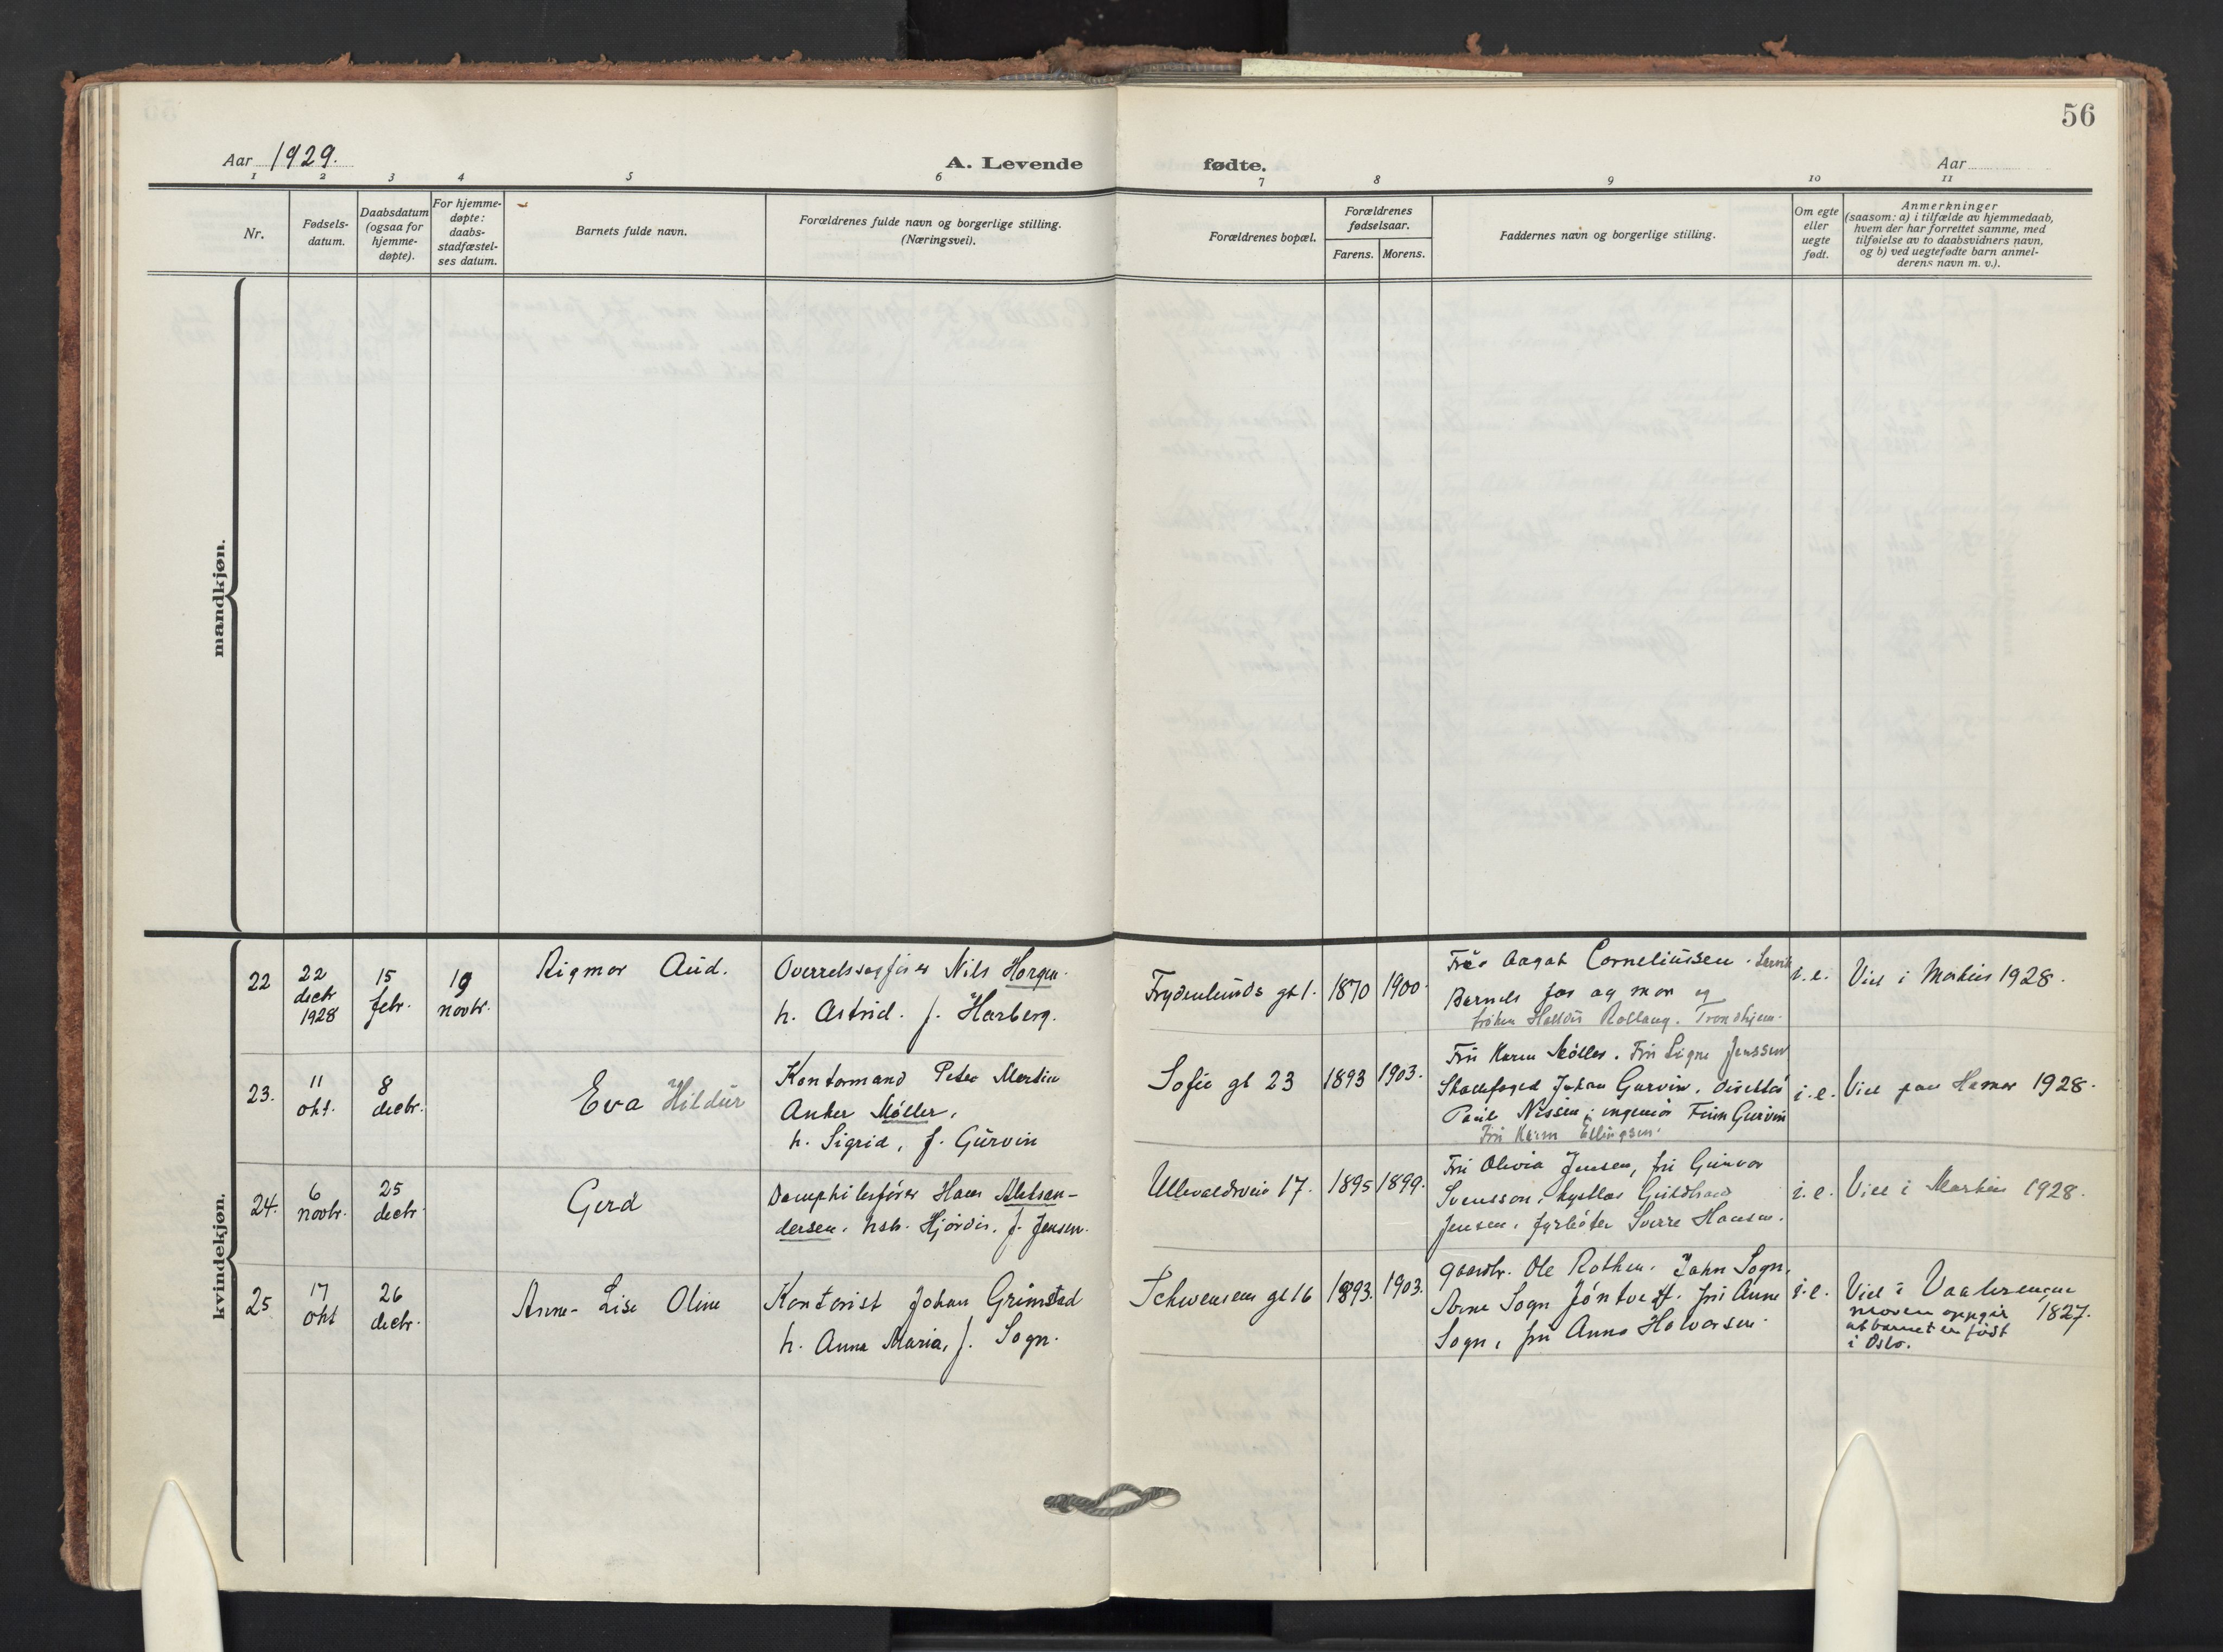 56
Aar 1929.
A. Levende fødte.
Aar
1 2 3 4 5 6 7 8 9 10 11
Nr.
Fødsels-
datum.
Daabsdatum
(ogsaa for
hjemme-
døpte).
For hjemme-
døpte:
daabs-
stadfæstel-
ses datum.
Barnets fulde navn.
Forældrenes fulde navn og borgerlige stilling.
(Næringsvei).
Forældrenes bopæl.
Forældrenes
fødselsaar.
Farens. Morens.
Faddernes navn og borgerlige stilling.
Om egte
eller
uegte
født.
Anmerkninger
(saasom: a) i tilfælde av hjemmedaab,
hvem der har forrettet samme, med
tilføielse av to daabsvidners navn,
og b) ved uegtefødte barn anmel-
derens navn m. v.).
mandkjøn.
kvindekjøn.
22
22
decbr
1928
15
febr.
19
novbr.
Rigmor Aud.
Overretssagfører Nils Horgen.
h. Astrid. f. Harberg.
Frydenlunds gt 1.
1870
1900.
Frk. Aagot Corneliussen.
Barnets far og mor og
frøken Rollaug. Trondhjem.
i. e.
Viet i Markus 1928.
23.
11
okt.
8
decbr.
Eva Hildur
Kontormand Peter Martin
Anker Møller,
h. Sigrid, f. Gurvin
Sofie gt 23
1893
1903.
Fru Karen Møller. Fru Signe Jenssen
Johan Gurvin.
Nissen, ingeniør Finn Gurvin
Fru Karen Ellingsen.
i. e.
Viet paa Hamar 1928.
24.
6
novbr.
25
decbr.
Gerd
Hans Aleksan-
dersen. hstr. Hjørdis. f. Jensen.
Ullevaalsveien 17.
1895
1899.
Fru Olivia Jensen, fru Gunvor
Svensson,
Jensen, fyrbøter Sverre Hansen.
i. e.
Viet i Markus 1928.
25
17
okt
26
decbr.
Anne-Lise Oline
Kontorist Johan Grimstad
h. Anna Maria, f. Sogn.
Schwensens gt 16
1893.
1903.
gaardbr. Ole Rothen. John Sogn.
Arne Sogn fru Anne
Sogn, fru Anna Halvorsen.
i. e.
Viet i Vaalerengen
1827.
moren oppgir
at barnet er født
i Oslo.